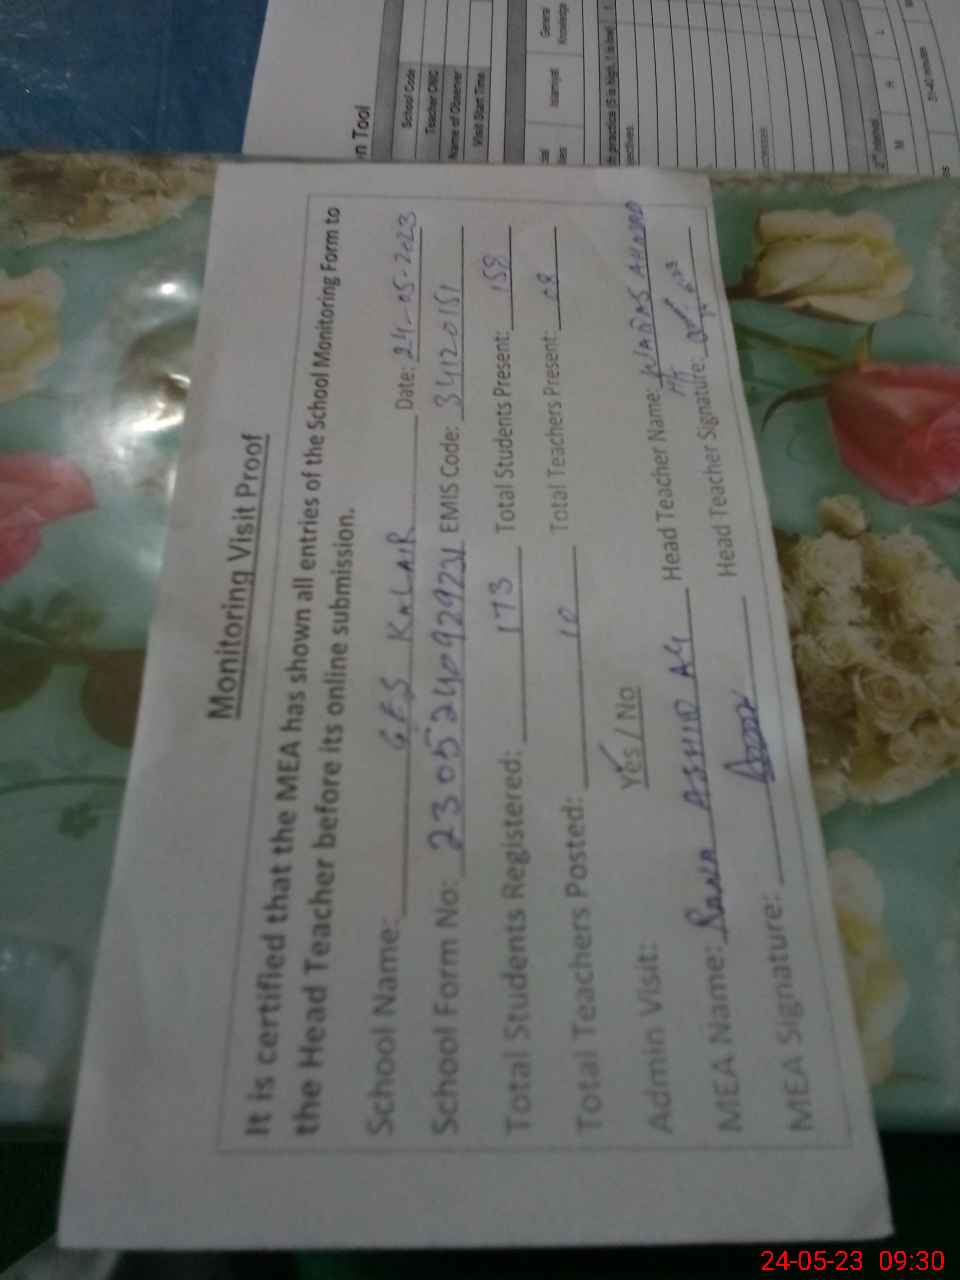 Monitoring Visit Proof
It is certified that the MEA has shown all entries of the School Monitoring Form to
the Head Teacher before its online submission.
School Name: GES KALAIR Date: 24-05-2023
School Form No: 230524092923 EMIS Code: 34120151
Total Students Registered: 173 Total Students Present: 158
Total Teachers Posted: 10 Total Teachers Present: 08
Admin Visit: Yes / No
MEA Name: RANA Head Teacher Name: WAQAS AHMAD
MEA Signature: Head Teacher Signature:
n Tool
School Code
Teacher CNIC
Name of Observer
Visit Start Time
Islamiyat
General
Knowledge
practice (5 is high, 1 is low)
M
H
L
31-40 minutes
24-05-23 09:30